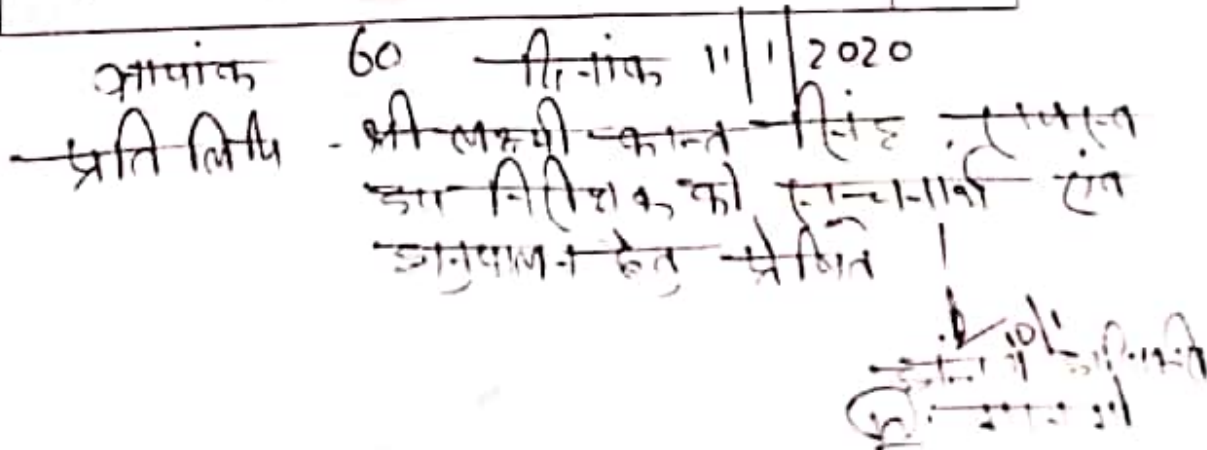 ज्ञापांक 60 दिनांक 11/1/2020
प्रतिलिपि - श्री लक्ष्मी कान्त सिंह, राजस्व
उप निरीक्षक को सूचनार्थ एवं
अनुपालन हेतु प्रेषित।